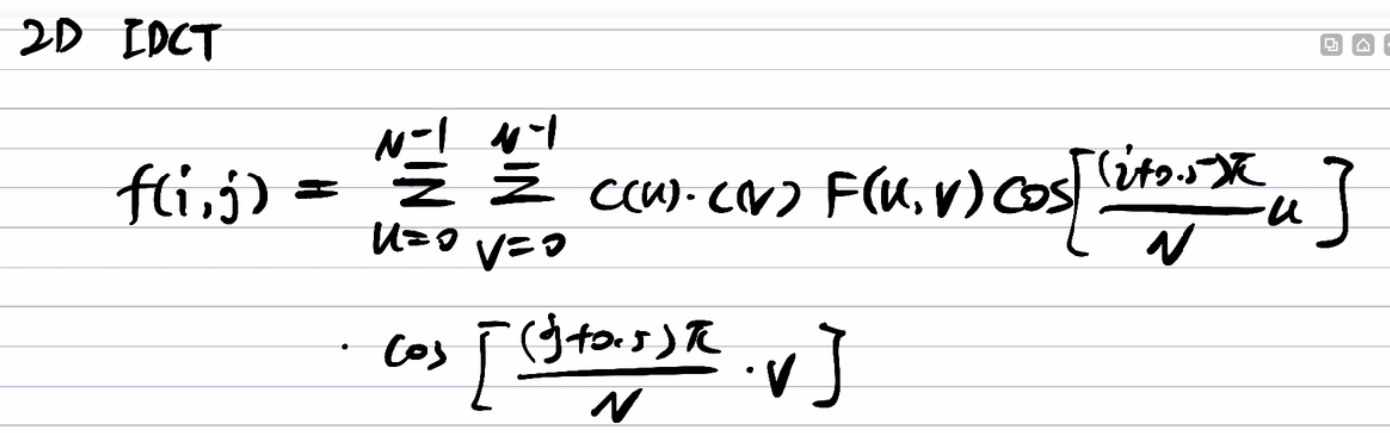 2D IDCT
f(i,j) = \sum_{u=0}^{N-1} \sum_{v=0}^{N-1} c(u)·c(v) F(u,v) cos[\frac{(i+0.5)π}{N} u]
· cos [\frac{(j+0.5)π}{N} · v]